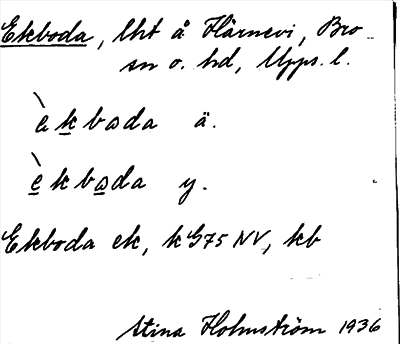 Ekboda, lht å Härnevi, Bro
sn o. hd, Upps. l.
èkboda ä.
èkboda y.
Ekboda ek, k G75 NV, kb
Stina Holmström 1936